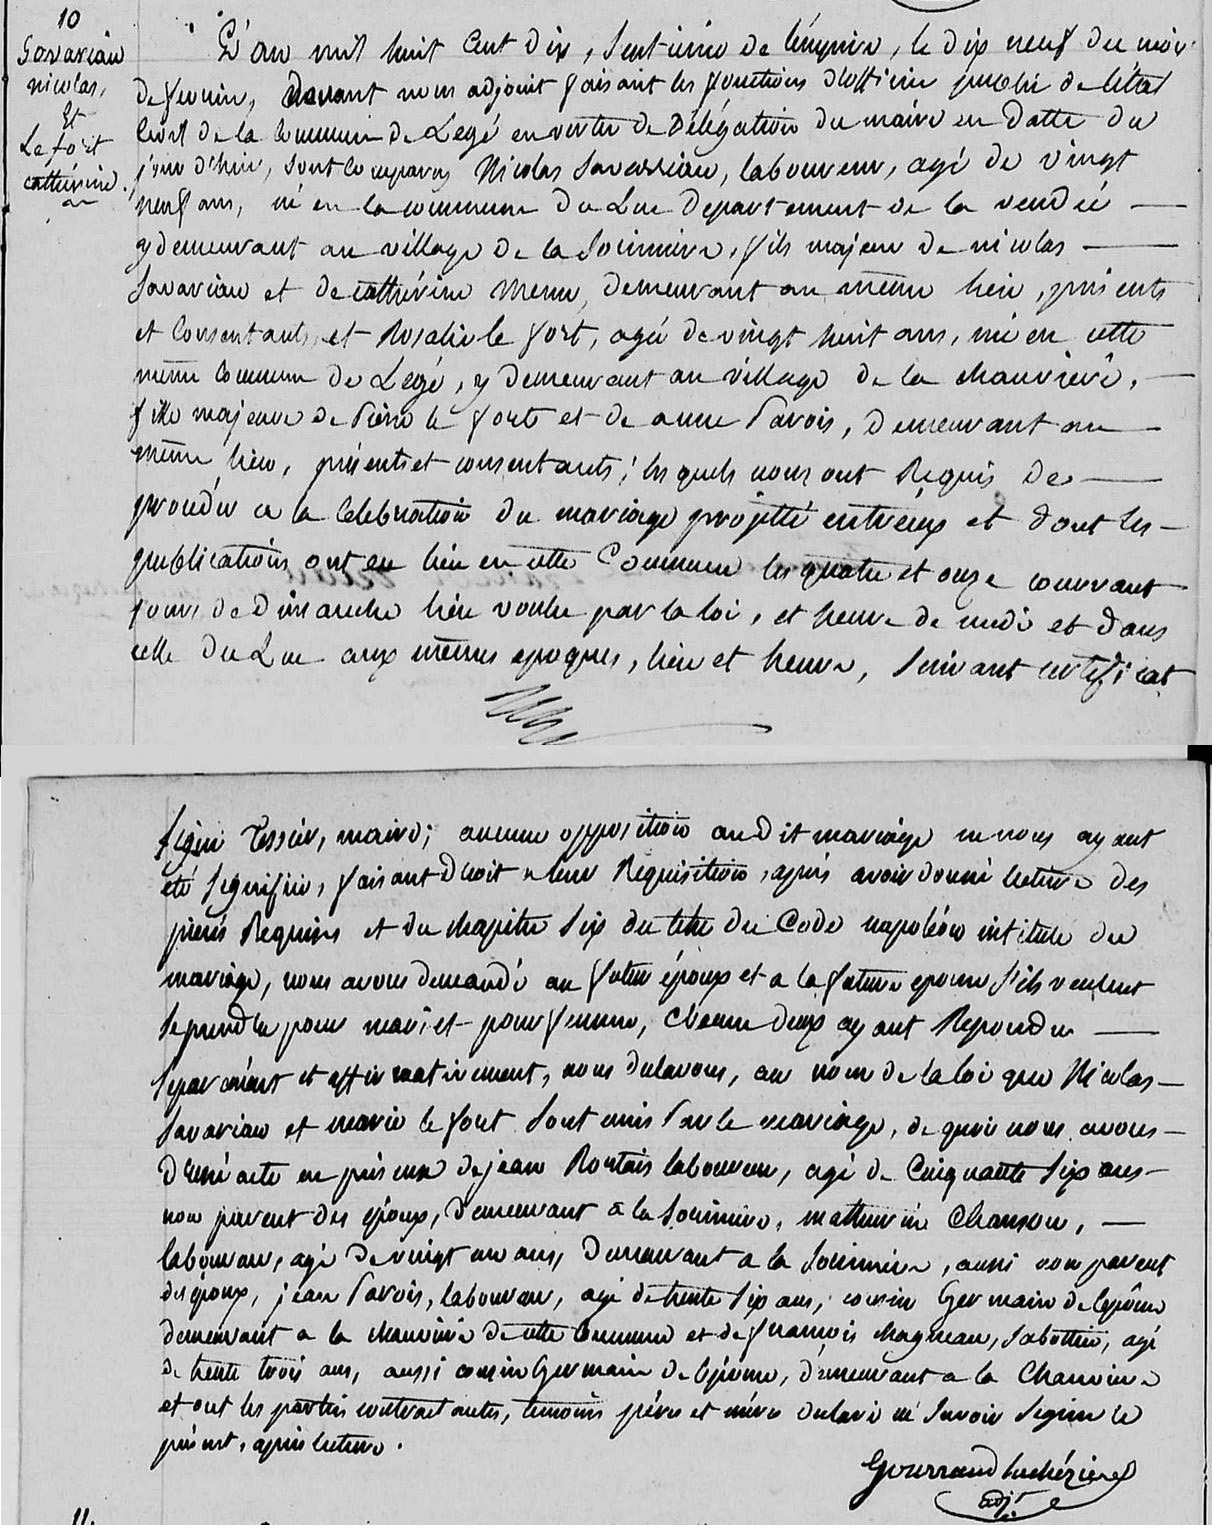 10
Savariau
nicolas,
Et
Le fort
catherine.
L'an mil huit cent dix, sixieme de l'empire, le dix neuf du mois
de fevrier, devant nous adjoint faisant les fonctions d'officier public de l'état
civil de la commune de Legé en vertu de Délégation du maire en Datte du
jour d'hui, sont comparus Nicolas Savarriau, laboureur, agé de vingt
neuf ans, né en la commune du Luc Departement de la vendée
y demeurant au village de la Sorinniere, fils majeur de nicolas
Savariau et de catherine menu, demeurant au même lieu, présents
et consentants, et Rosalie le fort, agée de vingt huit ans, née en cette
même commune de Legé, y demeurant au village de la chauvierê,
fille majeure de Pierre le fort et de anne Pavois, demeurant au
même lieu, présents et consentants; les quels nous ont Requis de
procéder a la Celebration du mariage projetté entr'eux et dont les
publications ont eu lieu en cette Commune les quatre et onze courrant
jours de Dimanche lieu voulu par la loi, et heure de midi et dans
celle du Luc aux mêmes epoques, lieu et heure, suivant certificat
signé Tessier, maire; aucune opposition audit mariage ne nous ayant
été signifiée, faisant Droit a leur Requisition, après avoir donné lecture des
pieces Requises et du chapitre six du titre du Code napoléon intitulé du
mariage, nous avons demandé au futur époux et a la future epouse s'ils veulent
se prendre pour mari et pour femme, chacun d'eux ayant Repondu
séparément et affirmativement, nous declarons, au nom de la loi que Nicolas
Savariau et marie le fort sont unis par le mariage, de quoi nous avons
d'réssé acte en présence de jean Rortais laboureur, agé de Cinquante six ans
non parent des époux, demeurant à la Sorinniere, mathurin Chanson,
laboureur, agé de vingt un ans, demeurant a la Sorinniere, aussi non parent
des époux, jean Pavois, laboureur, agé de trente six ans, cousin Germain de l'épouse
demeurant a la chauviere de cette commune et de francois Magneau, Sabottier, agé
de trente trois ans, aussi cousin Germain de l'épouse, demeurant a la Chauviere
et ont les parties contractantes, témoins péres et méres declaré né savoir signer le
présent, après lecture.
Gourraud
adj.t
11.